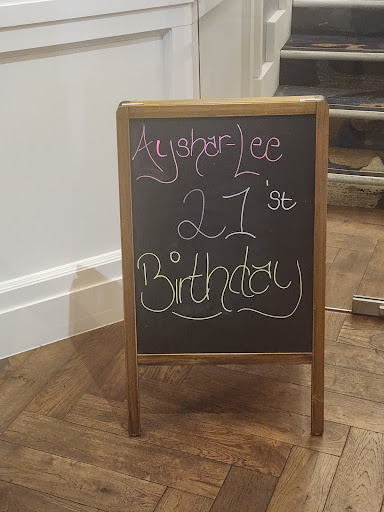 Ayshar-Lee
21'st
Birthday